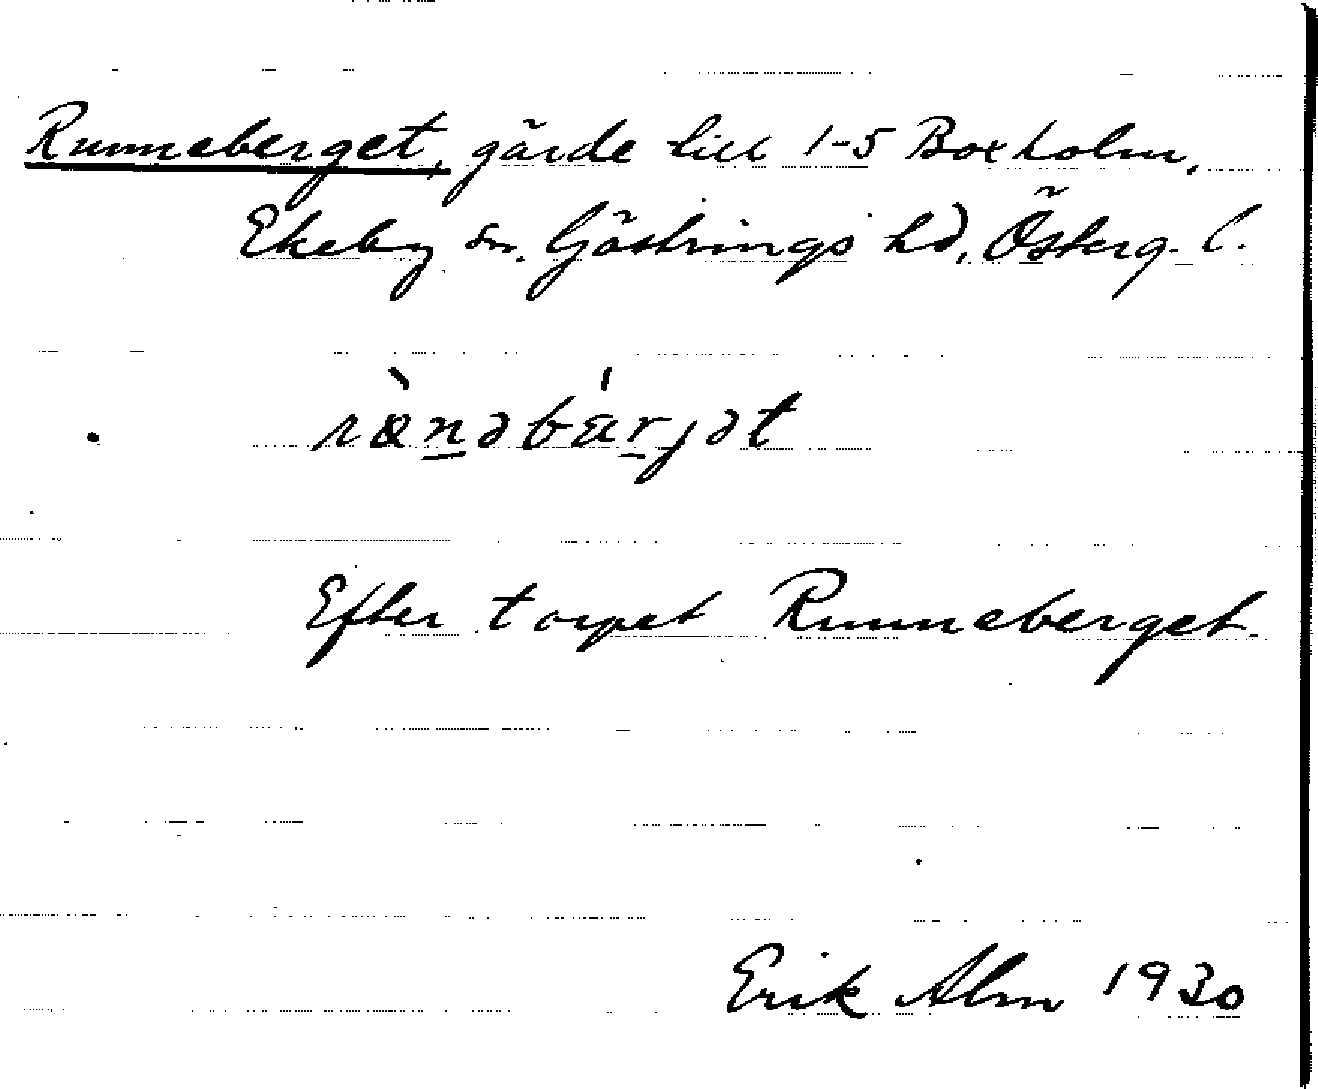 Runneberget, gärde till 1-5 Boxholm,
Ekeby sn. Göstrings hd, Österg. l.
rànəbárjət
Efter torpet Runneberget.
Erik Alm 1930